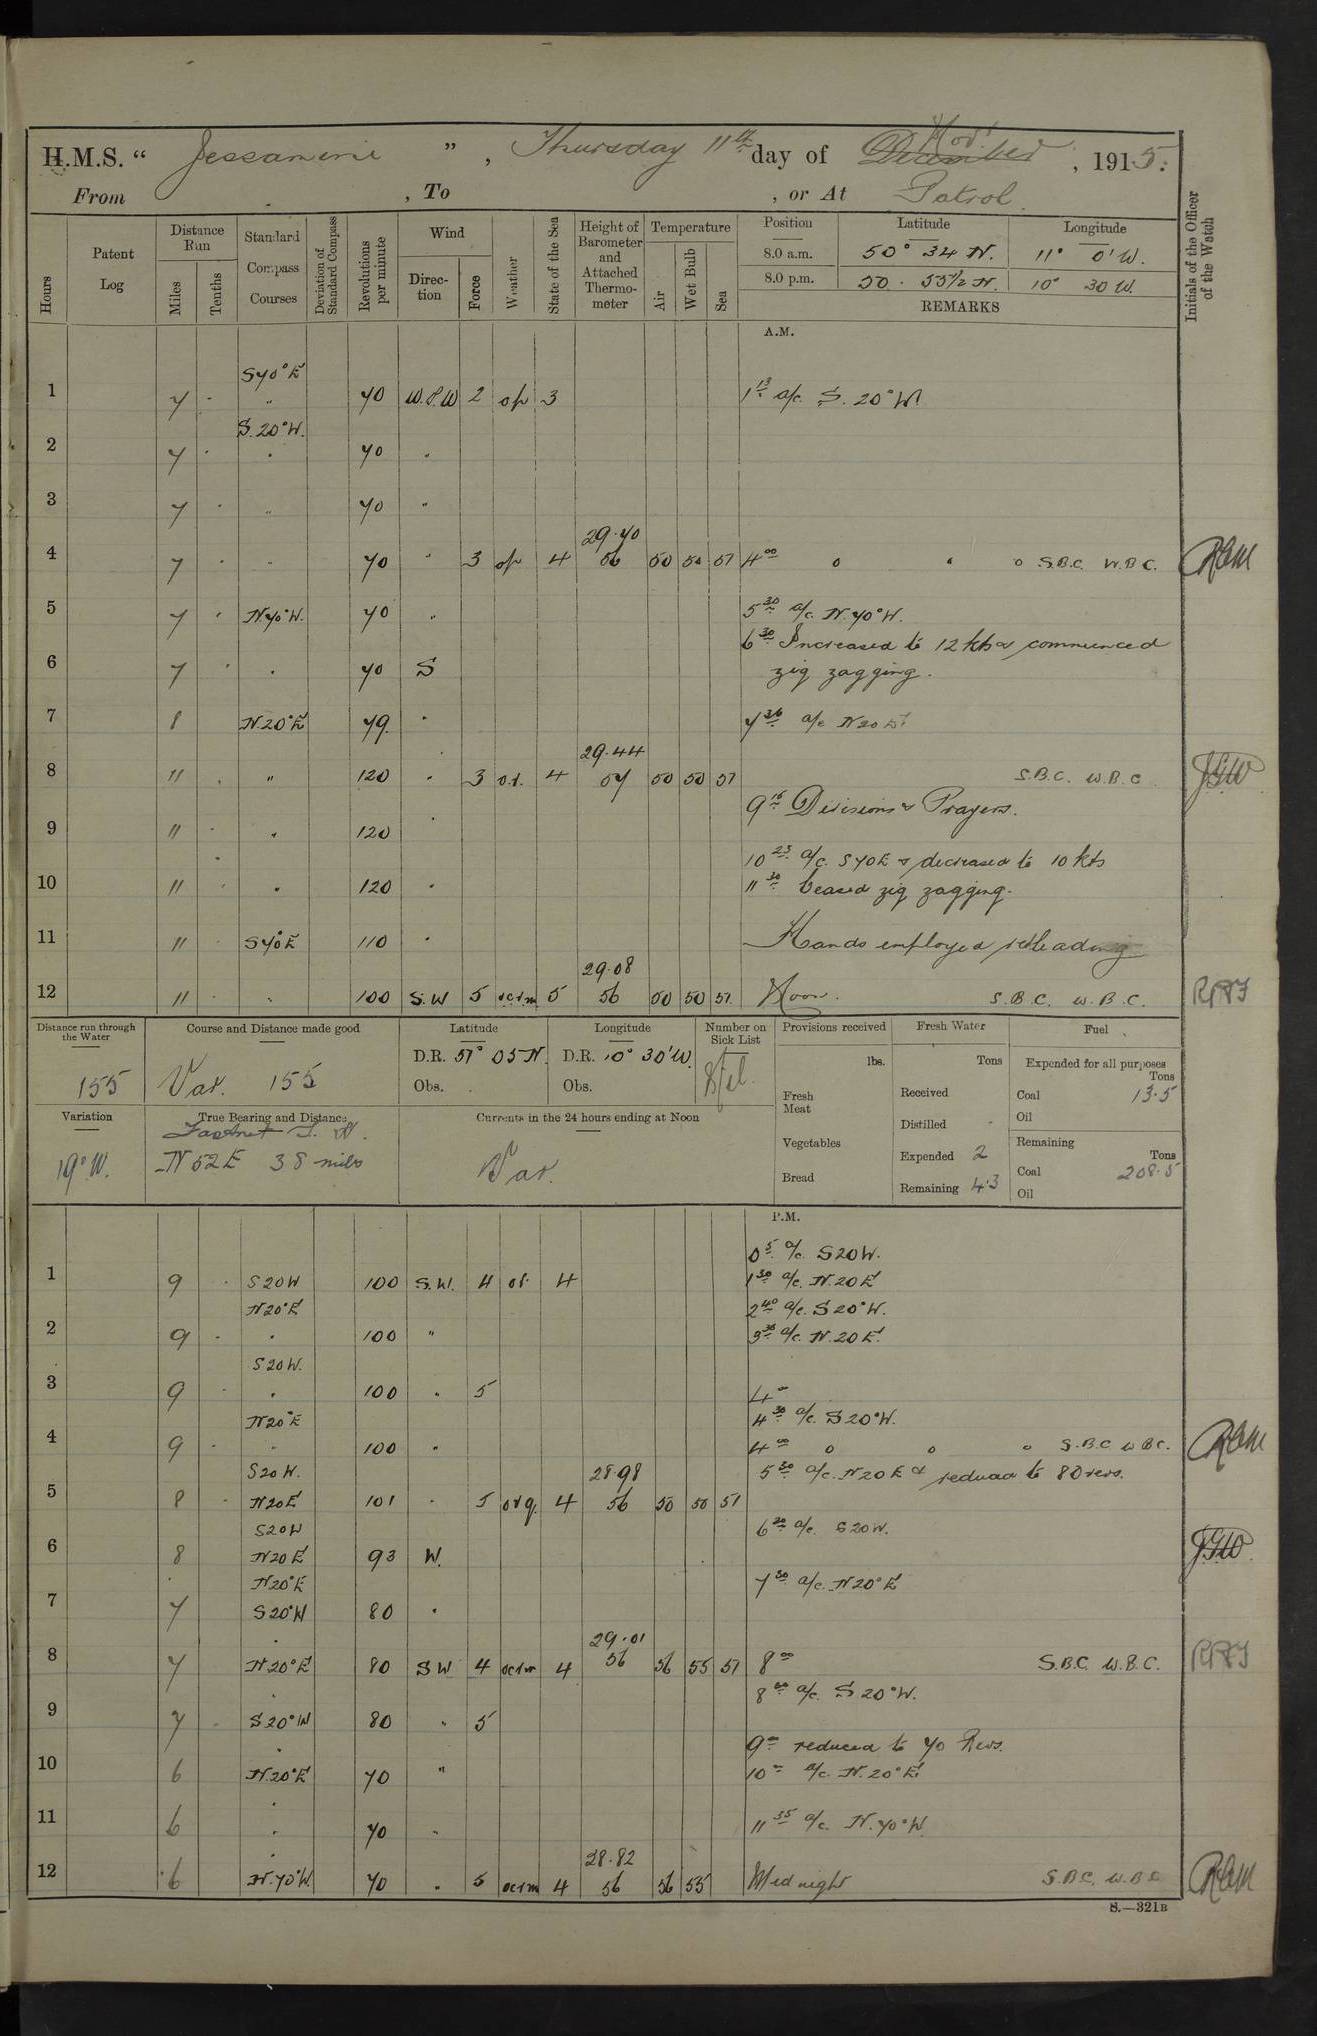 H.M.S. " Jessamine " , Thursday 11th day of December Novr , 1915:
From , To , or At Patrol
Hours Patent Log Distance Run Miles Tenths Standard Compass Courses Deviation of Standard Compass Revolutions per minute Wind Direction Force Weather State of the Sea Height of Barometer and Attached Thermometer Temperature Air Wet Bulb Sea Position Latitude Longitude Initials of the Officer of the Watch
8.0 a.m. 50° 34 N. 11° 0' W.
8.0 p.m. 50 . 55 1/2 N. 10° 30 W.
REMARKS
A.M.
S70°E
1 7 . " 70 W.S.W 2 op 3 1 13 a/c. S. 20°W
S.20°W.
2 7 . " 70 "
3 7 . " 70 "
29.40
4 7 . " 70 " 3 op 4 56 50 50 51 4 00 o " o S.B.C. W.B.C. RAM
5 7 . N.70°W. 70 " 5 30 a/c. N.70°W.
6 30 Increased to 12 kts & commenced
6 7 . " 70 S zig zagging.
7 8 N.20°E 79. " 7 36 a/c N20E
29.44
8 11 . " 120 " 3 o.r. 4 57 50 50 51 S.B.C. W.B.C JGW
9 15 Divisions & Prayers.
9 11 . " 120 "
10 23 a/c. S70E & decreased to 10 kts
10 11 . " 120 " 11 30 Ceased zig zagging.
11 11 . S70E 110 " Hands employed
29.08
12 11 . " 100 S.W 5 o.c.r.m 5 56 50 50 51. Noon. S.B.C. W.B.C.
Distance run through the Water Course and Distance made good Latitude Longitude Number on Sick List Provisions received Fresh Water Fuel
155 Var. 155 D.R. 51° 05 N. D.R. 10° 30' W. lbs. Tons Expended for all purposes Tons
Obs. Obs. Fresh Meat Received Coal 13.5
Variation True Bearing and Distance Currents in the 24 hours ending at Noon Distilled - Oil
Fastnet Vegetables Remaining Tons
19° W. N 52 E 38 miles Var. Expended 2 Coal 208.5
Bread Remaining 43 Oil
P.M.
0 5 a/c. S20W.
1 9 . S20W 100 S.W. 4 or. 4 1 30 a/c. N.20E
N20°E 2 40 a/c. S20°W.
2 9 . " 100 " 3 30 a/c. N.20E.
S20W.
3 9 . " 100 " 5 4
N20°E 4 30 a/c. S20°W.
4 9 . " 100 " 4 00 o o o S.B.C W.B.C. RAM
S20W. 28.98 5 30 a/c. N20E & reduced to 80 revs.
5 8 . N20E 101 " 5 orq. 4 56 50 50 51
S20W 6 20 a/c. S20W.
6 8 N20E 93 W. JGW.
N20°E 7 30 a/c. N20°E
7 7 S20°W 80 "
29.01
8 7 N.20°E 80 SW 4 ocrm 4 56 56 55 51 8 00 S.B.C. W.B.C.
8 a/c. S.20°W.
9 7 . S20°W 80 " 5
9 reduced to 70 Revs.
10 6 N.20°E 70 " 10 a/c. N.20°E
11 6 " 70 " 11 35 a/c. N.70°W.
28.82
12 6 N.70°W. 70 " 5 ocrm 4 56 56 55 Midnight S.B.C. W.B.C RAM
S.—321B